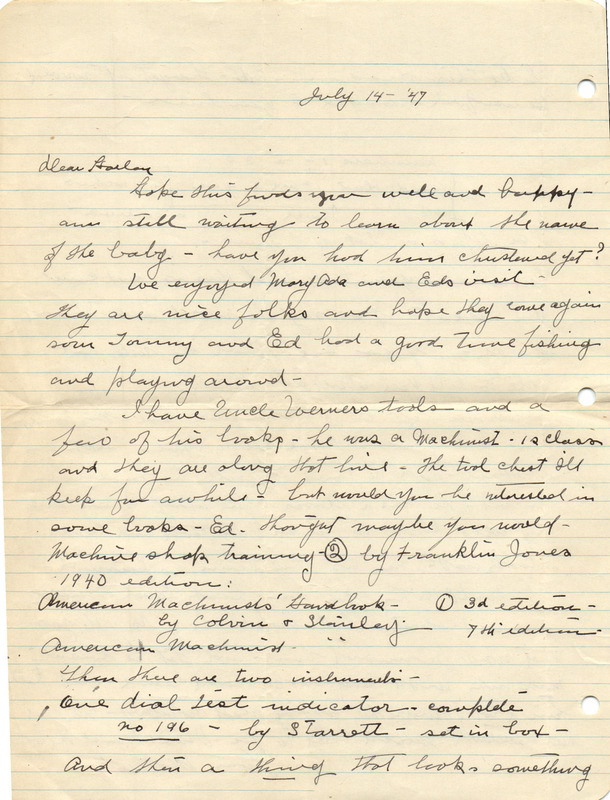 July 14 - '47
Dear Harlan
Hope this finds you well and happy -
am still waiting to learn about the name
of the baby - have you had him christened yet?
We enjoyed Mary Ada and Eds visit -
They are nice folks and hope they come again
soon Tommy and Ed had a good time fishing
and playing around -
I have Uncle Werners tools and a
few of his books - he was a Machinist - 1st class
and they are along that line - The tool chest Ill
keep for awhile - but would you be interested in
some books - Ed. thought maybe you would -
Machine shop training - ② by Franklin Jones
1940 edition:
American Machinists' Handbook - ① 3d edition -
by Colvin & Stanley. 7th edition -
American Machinist - " "
Then there are two instruments -
One dial test indicator - complete
no 196 - by Starrett - set in box -
And then a thing that looks something